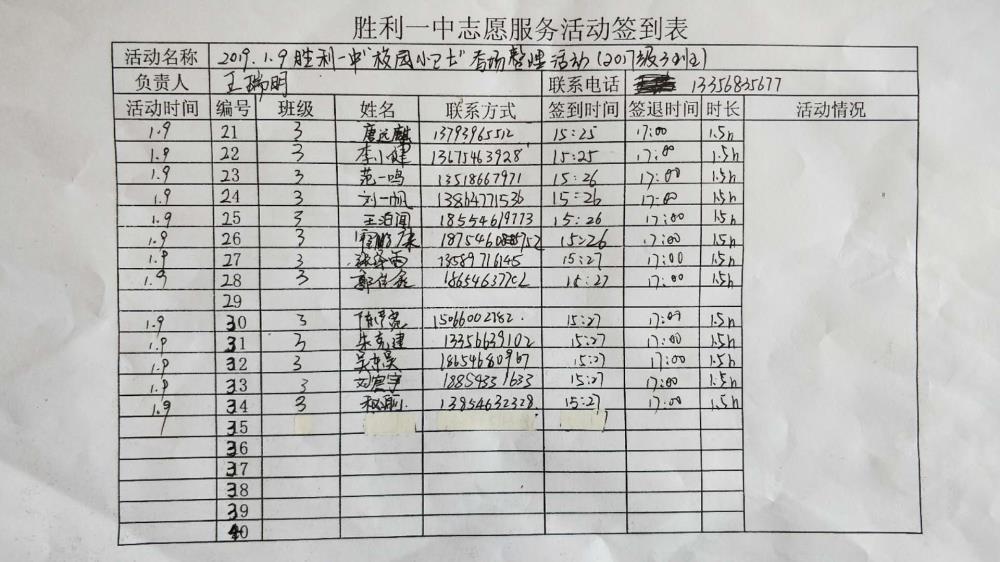 胜利一中志愿服务活动签到表
活动名称 2019.1.9胜利一中"校园小卫士"考场整理活动(2017级3班)
负责人 王瑞明 联系电话 13356835677
活动时间 编号 班级 姓名 联系方式 签到时间 签退时间 时长 活动情况
1.9 21 3 唐远麒 13793965512 15:25 17:00 1.5h
1.9 22 3 李小健 13675463928 15:25 17:00 1.5h
1.9 23 3 范一鸣 13518667971 15:26 17:00 1.5h
1.9 24 3 刘一帆 13864771536 15:26 17:00 1.5h
1.9 25 3 王泊闻 18554619773 15:26 17:00 1.5h
1.9 26 3 15:26 17:00 1.5h
1.9 27 3 13589716145 15:27 17:00 1.5h
1.9 28 3 15:27 17:00 1.5h
29
1.9 30 3 15066002782 15:27 17:00 1.5h
1.9 31 3 13356639102 15:27 17:00 1.5h
1.9 32 3 吴东昊 18654680967 15:27 17:00 1.5h
1.9 33 3 刘宸宇 15:27 17:00 1.5h
1.9 34 3 13854632328 15:27 17:00 1.5h
35
36
37
38
39
40